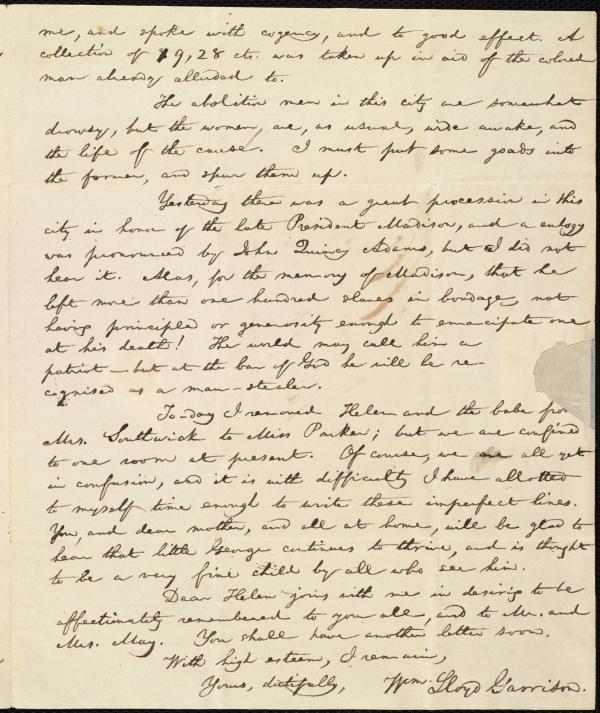 me, and spoke with cogency, and to good effect. A
collection of 19,28 cts. was taken up in aid of the colored
man already alluded to.
The abolition men in this city are somewhat
drowsy, but the women, are, as usual, wide awake, and
the life of the cause. I must put some goads into
the former, and spur them up.
Yesterday there was a great procession in this
city in honor of the late President Madison, and a eulogy
was pronounced by John Quincy Adams, but I did not
hear it. Alas, for the memory of Madison, that he
left more than one hundred slaves in bondage, not
having principle or generosity enough to emancipate one
at his death! The world may call him a
patriot — but at the bar of God he will be re-
cognised as a man-stealer.
To-day I removed Helen and the babe from
Mrs. Southwick to Miss Parker; but we are confined
to one room at present. Of course, we are all yet
in confusion, and it is with difficulty I have allotted
to myself time enough to write these imperfect lines.
You, and dear mother, and all at home, will be glad to
hear that little George continues to thrive, and is thought
to be a very fine child by all who see him.
Dear Helen joins with me in desiring to be
affectionately remembered to you all, and to Mr. and
Mrs. May. You shall have another letter soon.
With high esteem, I remain,
Yours, dutifully, Wm. Lloyd Garrison.